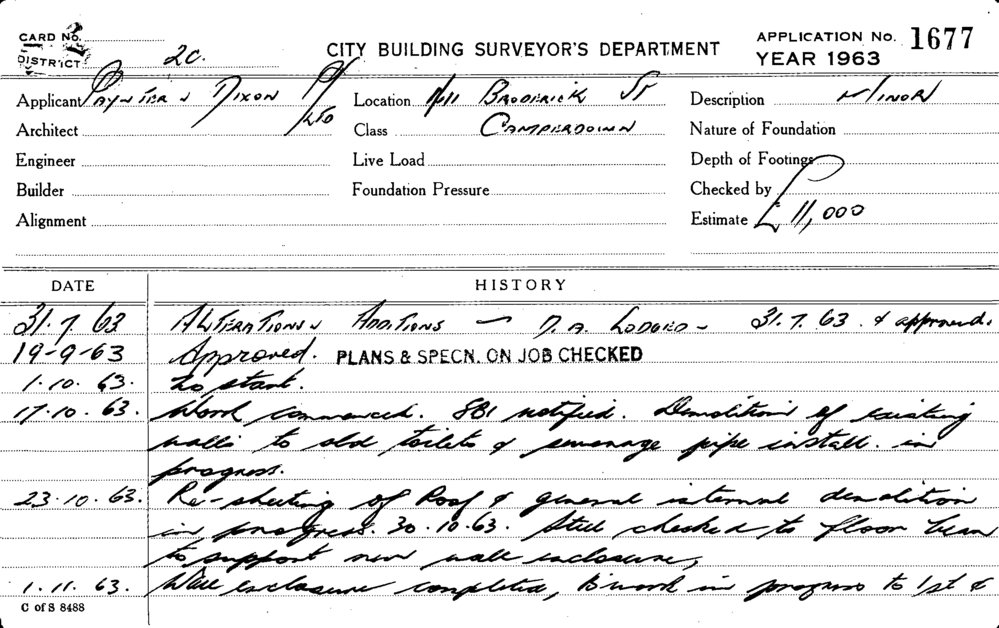 CARD No.
DISTRICT 2C.
CITY BUILDING SURVEYOR'S DEPARTMENT
APPLICATION No. 1677
YEAR 1963
Applicant Paynter & Dixon P/Ltd
Location Broderick St
Description Minor
Architect
Class Camperdown
Nature of Foundation
Engineer
Live Load
Depth of Footings
Builder
Foundation Pressure
Checked by
Alignment
Estimate £11,000
DATE
HISTORY
31.7.63 Alterations Additions — D.A. Lodged – 31.7.63. & approved.
19-9-63 Approved. PLANS & SPECN. ON JOB CHECKED
1.10.63. To start.
17.10.63. Work commenced. SBI notified. Demolition of existing
walls to old toilets & sewerage pipe install. in
progress.
23.10.63. Re-sheeting of Roof & general internal demolition
in progress. 30.10.63. Steel checked to floor beam
to support new wall enclosure,
1.11.63. Wall enclosure completed, B'work in progress to 1st &
C of S 8488